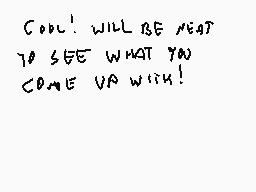 COOL! WILL BE NEAT
TO SEE WHAT YOU
COME UP WITH!